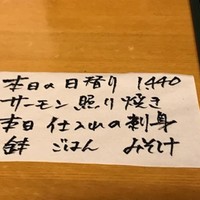 本日の日替り 1,440
サーモン照り焼き
本日仕入れの刺身
ごはん みそ汁